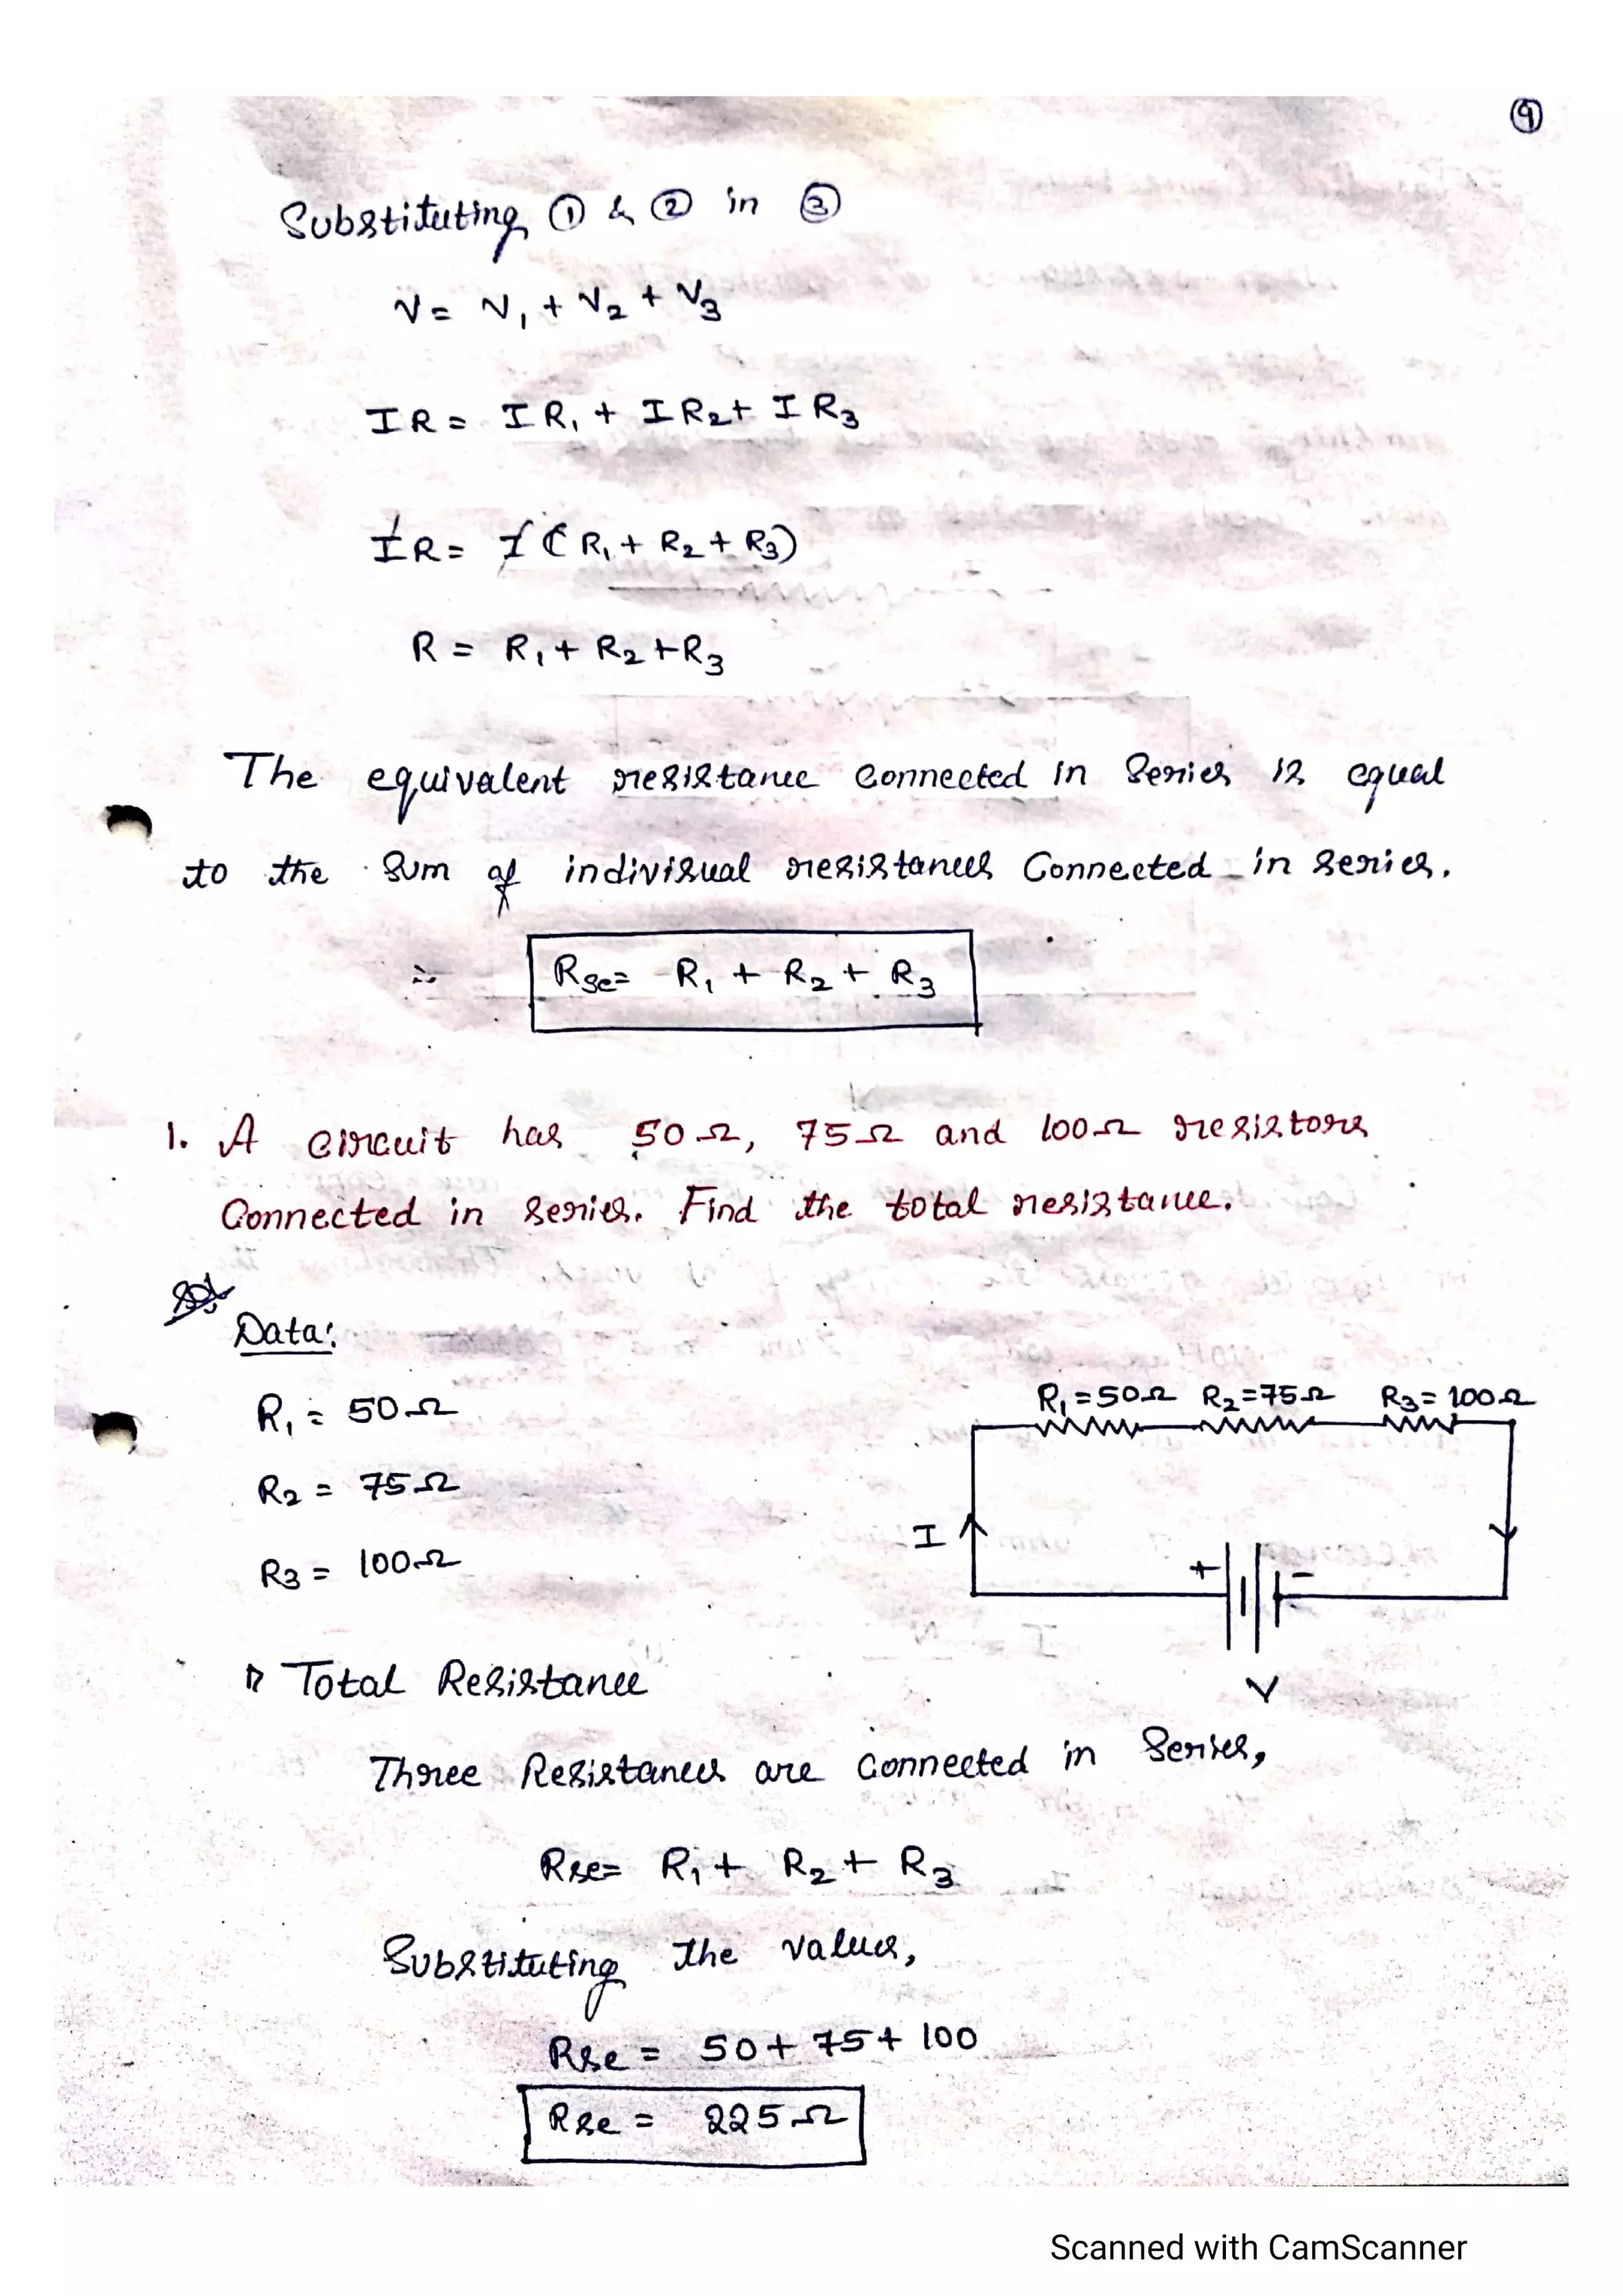 9
Substituting ① & ② in ③
V = V₁ + V₂ + V₃
IR = IR₁ + IR₂ + IR₃
IR = I(R₁ + R₂ + R₃)
R = R₁ + R₂ + R₃
The equivalent resistance connected in series is equal
to the sum of indivisual resistances connected in series.
∴ Rse = R₁ + R₂ + R₃
1. A circuit has 50Ω, 75Ω and 100Ω resistors
Connected in series. Find the total resistance.
Sol
Data:
R₁ = 50Ω
R₂ = 75Ω
R₃ = 100Ω
R₁ = 50Ω R₂ = 75Ω R₃ = 100Ω
I
+ -
V
Total Resistance
Three Resistances are connected in series,
Rse = R₁ + R₂ + R₃
Substituting the values,
Rse = 50 + 75 + 100
Rse = 225Ω
Scanned with CamScanner